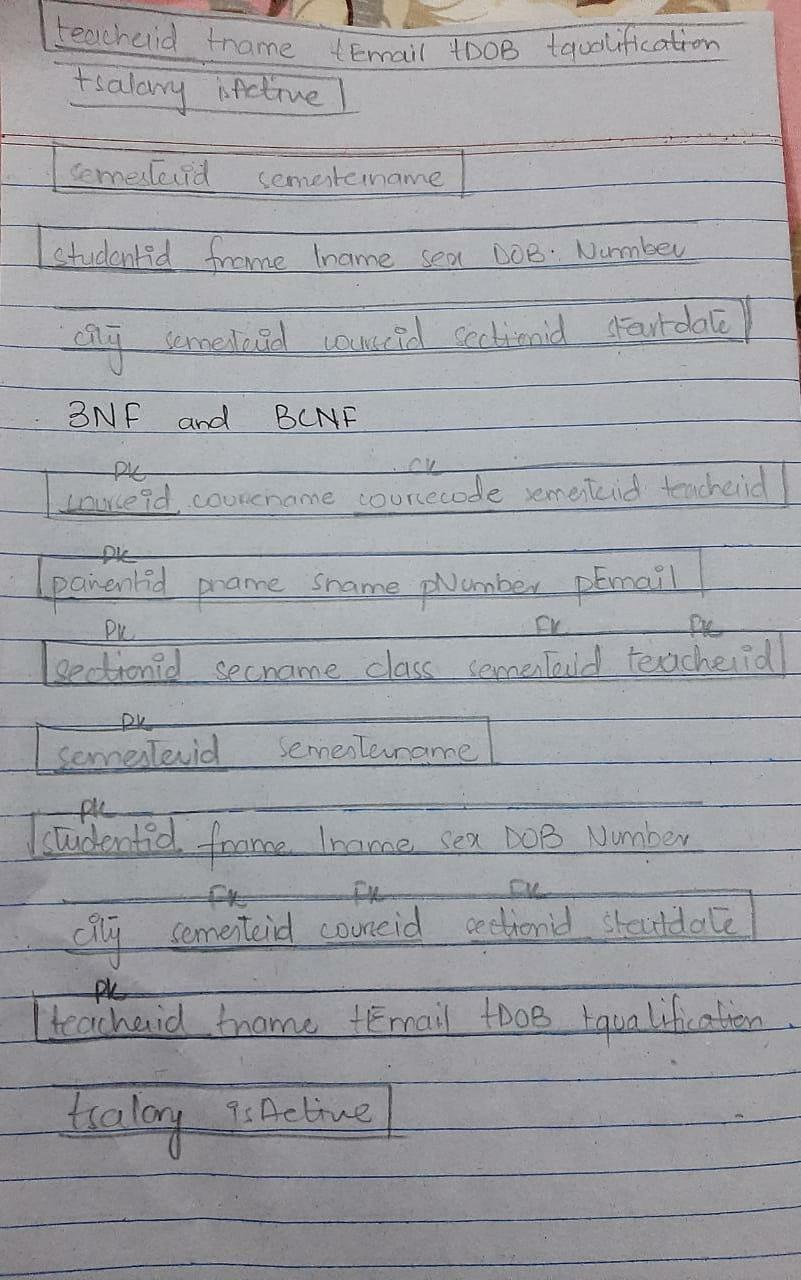 teacherid tname tEmail tDOB tqualification
tsalary isActive
semesterid semestername
studentid fname lname sex DOB. Number
city semesterid courseid sectionid startdate
3NF and BCNF
PK CK
courseid coursename coursecode semesterid teacherid
PK
parentid pname sname pNumber pEmail
PK FK FK
sectionid secname class semesterid teracherid
PK
semesterid semestername
PK
studentid fname lname sex DOB Number
FK FK FK
city semesterid courseid sectionid startdate
PK
teacherid tname tEmail tDOB tqualification
tsalary isActive